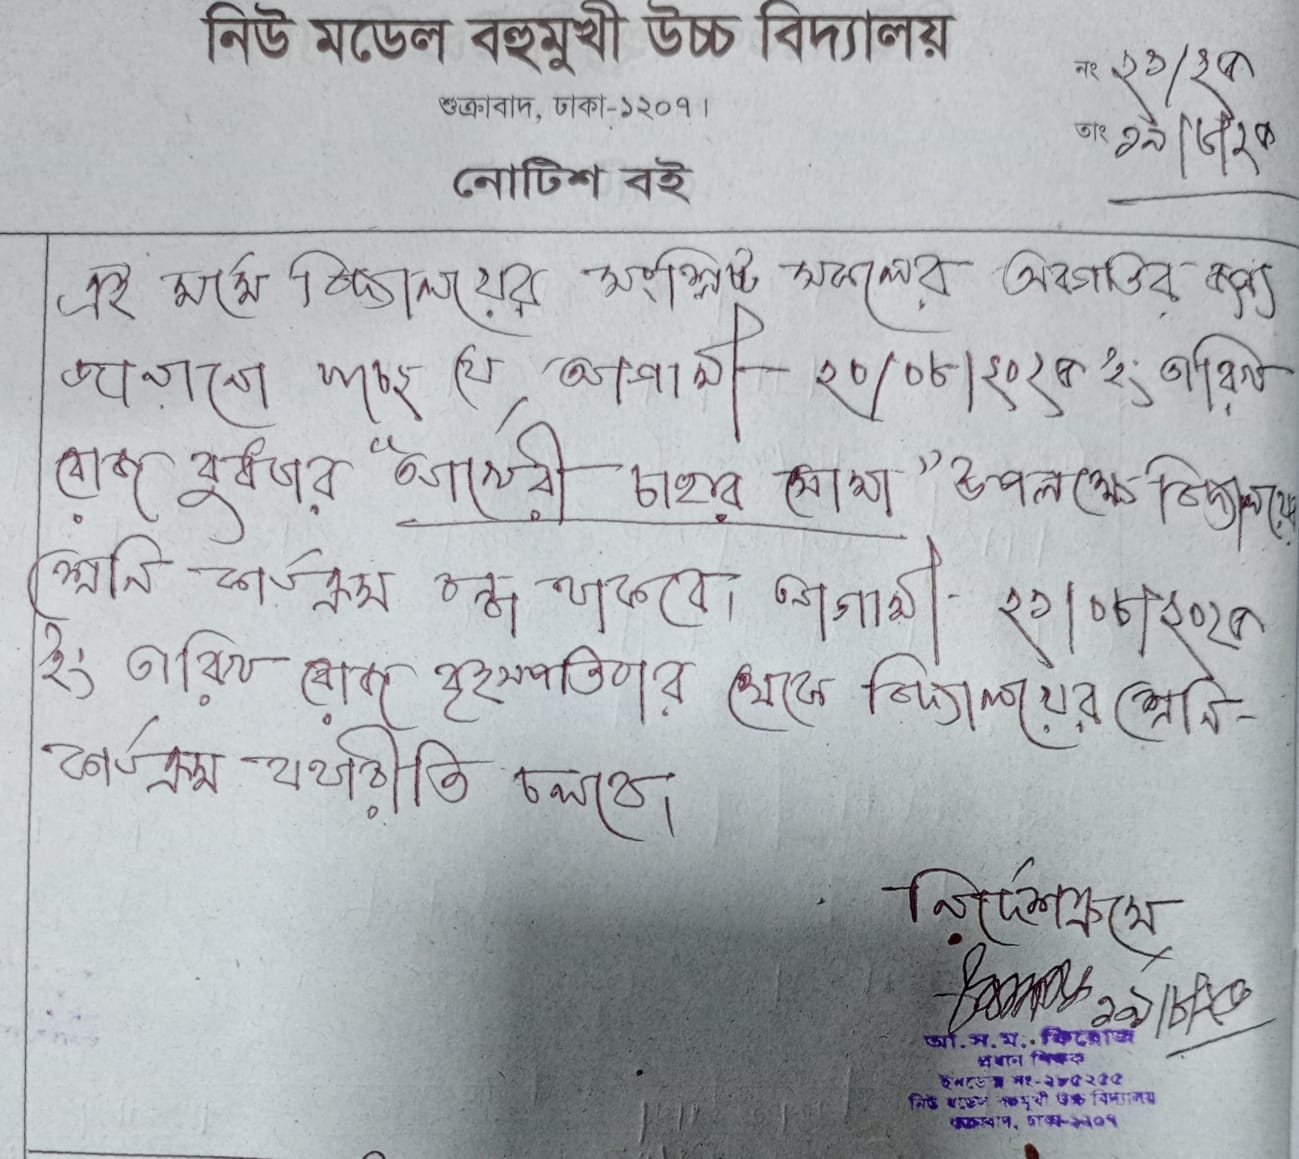 নিউ মডেল বহুমুখী উচ্চ বিদ্যালয়
শুক্রাবাদ, ঢাকা-১২০৭।
নং ২১/২৫
তাং ১৯/৮/২৫
নোটিশ বই
এই মর্মে বিদ্যালয়ের সংশ্লিষ্ট সকলের অবগতির জন্য
জানানো যাচ্ছে যে আগামী ২০/০৮/২০২৫ ইং তারিখ
রোজ বুধবার “আখেরী চাহার সোম্বা” উপলক্ষে বিদ্যালয়ের
শ্রেনি কার্যক্রম বন্ধ থাকবে। আগামী ২১/০৮/২০২৫
ইং তারিখ রোজ বৃহসপতিবার থেকে বিদ্যালয়ের শ্রেনি-
কার্যক্রম যথারীতি চলবে।
নির্দেশক্রমে
১৯/৮/২৫
আ.স.ম. ফিরোজ
প্রধান শিক্ষক
ইনডেক্স নং-২৮৫২৫৫
নিউ মডেল বহুমুখী উচ্চ বিদ্যালয়
শুক্রাবাদ, ঢাকা-১২০৭